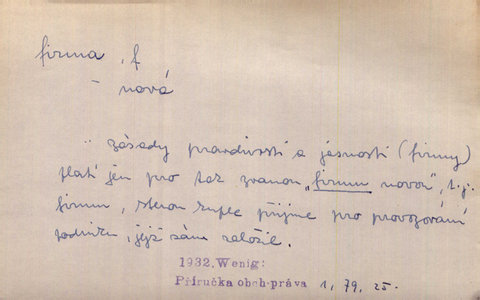 firma, f
- nová
zásady pravdivosti a jasnosti (firmy)
platí jen pro tak zvanou „firmu novou", t.j.
firmu, kterou kupec přijme pro provozování
podniku, jejž sám založil.
1932. Wenig:
Příručka obch. práva 1, 79, 25.